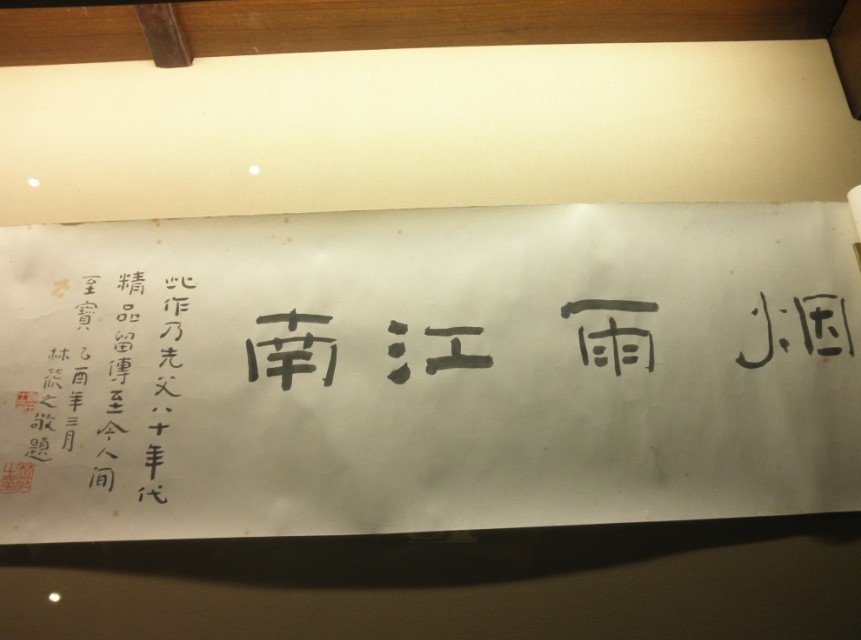 烟雨江南
此作乃先父八十年代
精品留傳至今人间
至寶乙酉年三月
林筱之敬題